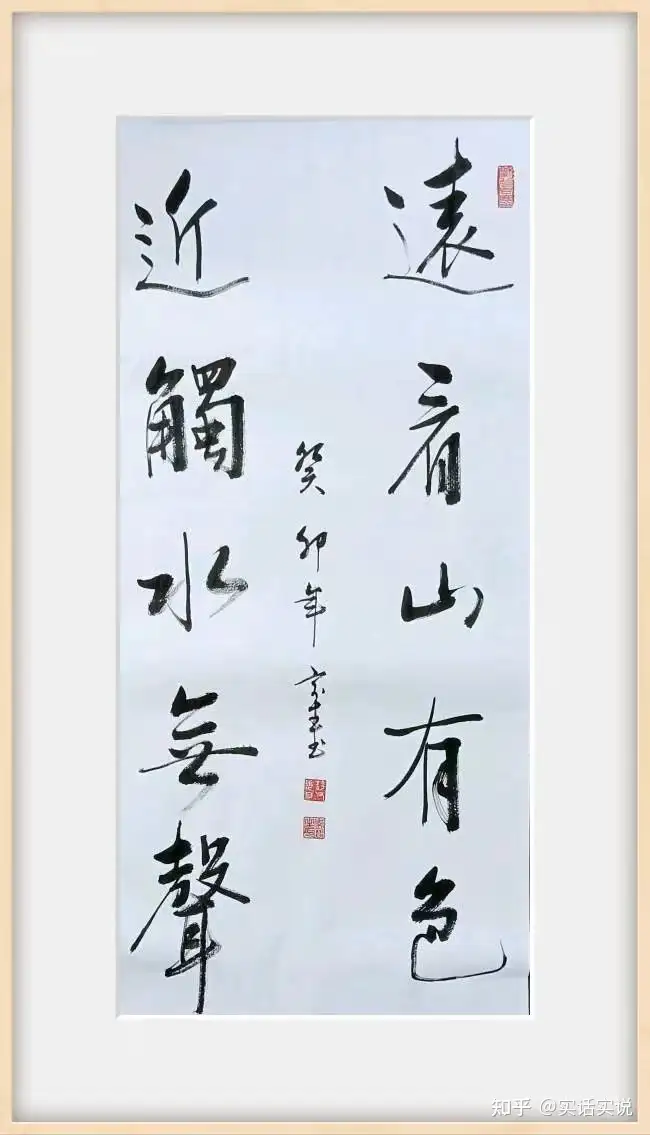 遠看山有色
癸卯年
近觸水無聲
知乎 @实话实说